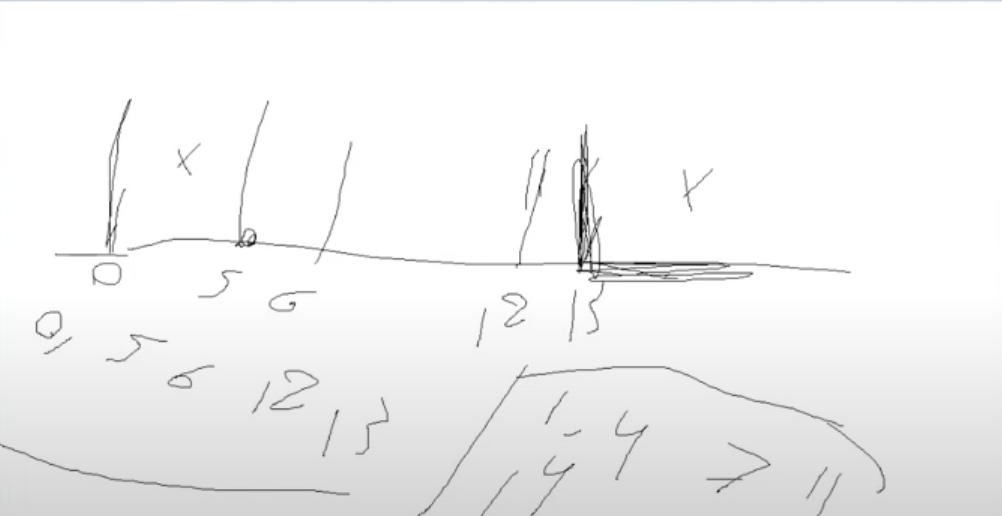 x x
0 5 6 12 13
0, 5 6 12 13
1-4 7 11
14